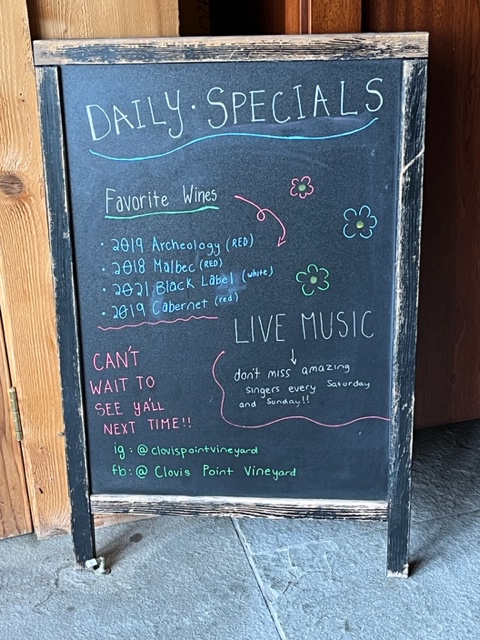 DAILY · SPECIALS
Favorite Wines
· 2019 Archeology (RED)
· 2018 Malbec (RED)
· 2021 Black Label (white)
· 2019 Cabernet (red)
LIVE MUSIC
don't miss amazing
singers every Saturday
and Sunday!!
CAN'T
WAIT TO
SEE YA'LL
NEXT TIME!!
ig: @clovispointvineyard
fb: @ Clovis Point Vineyard